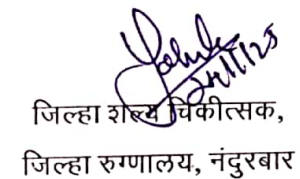 24/11/25
जिल्हा शल्य चिकीत्सक,
जिल्हा रुग्णालय, नंदुरबार